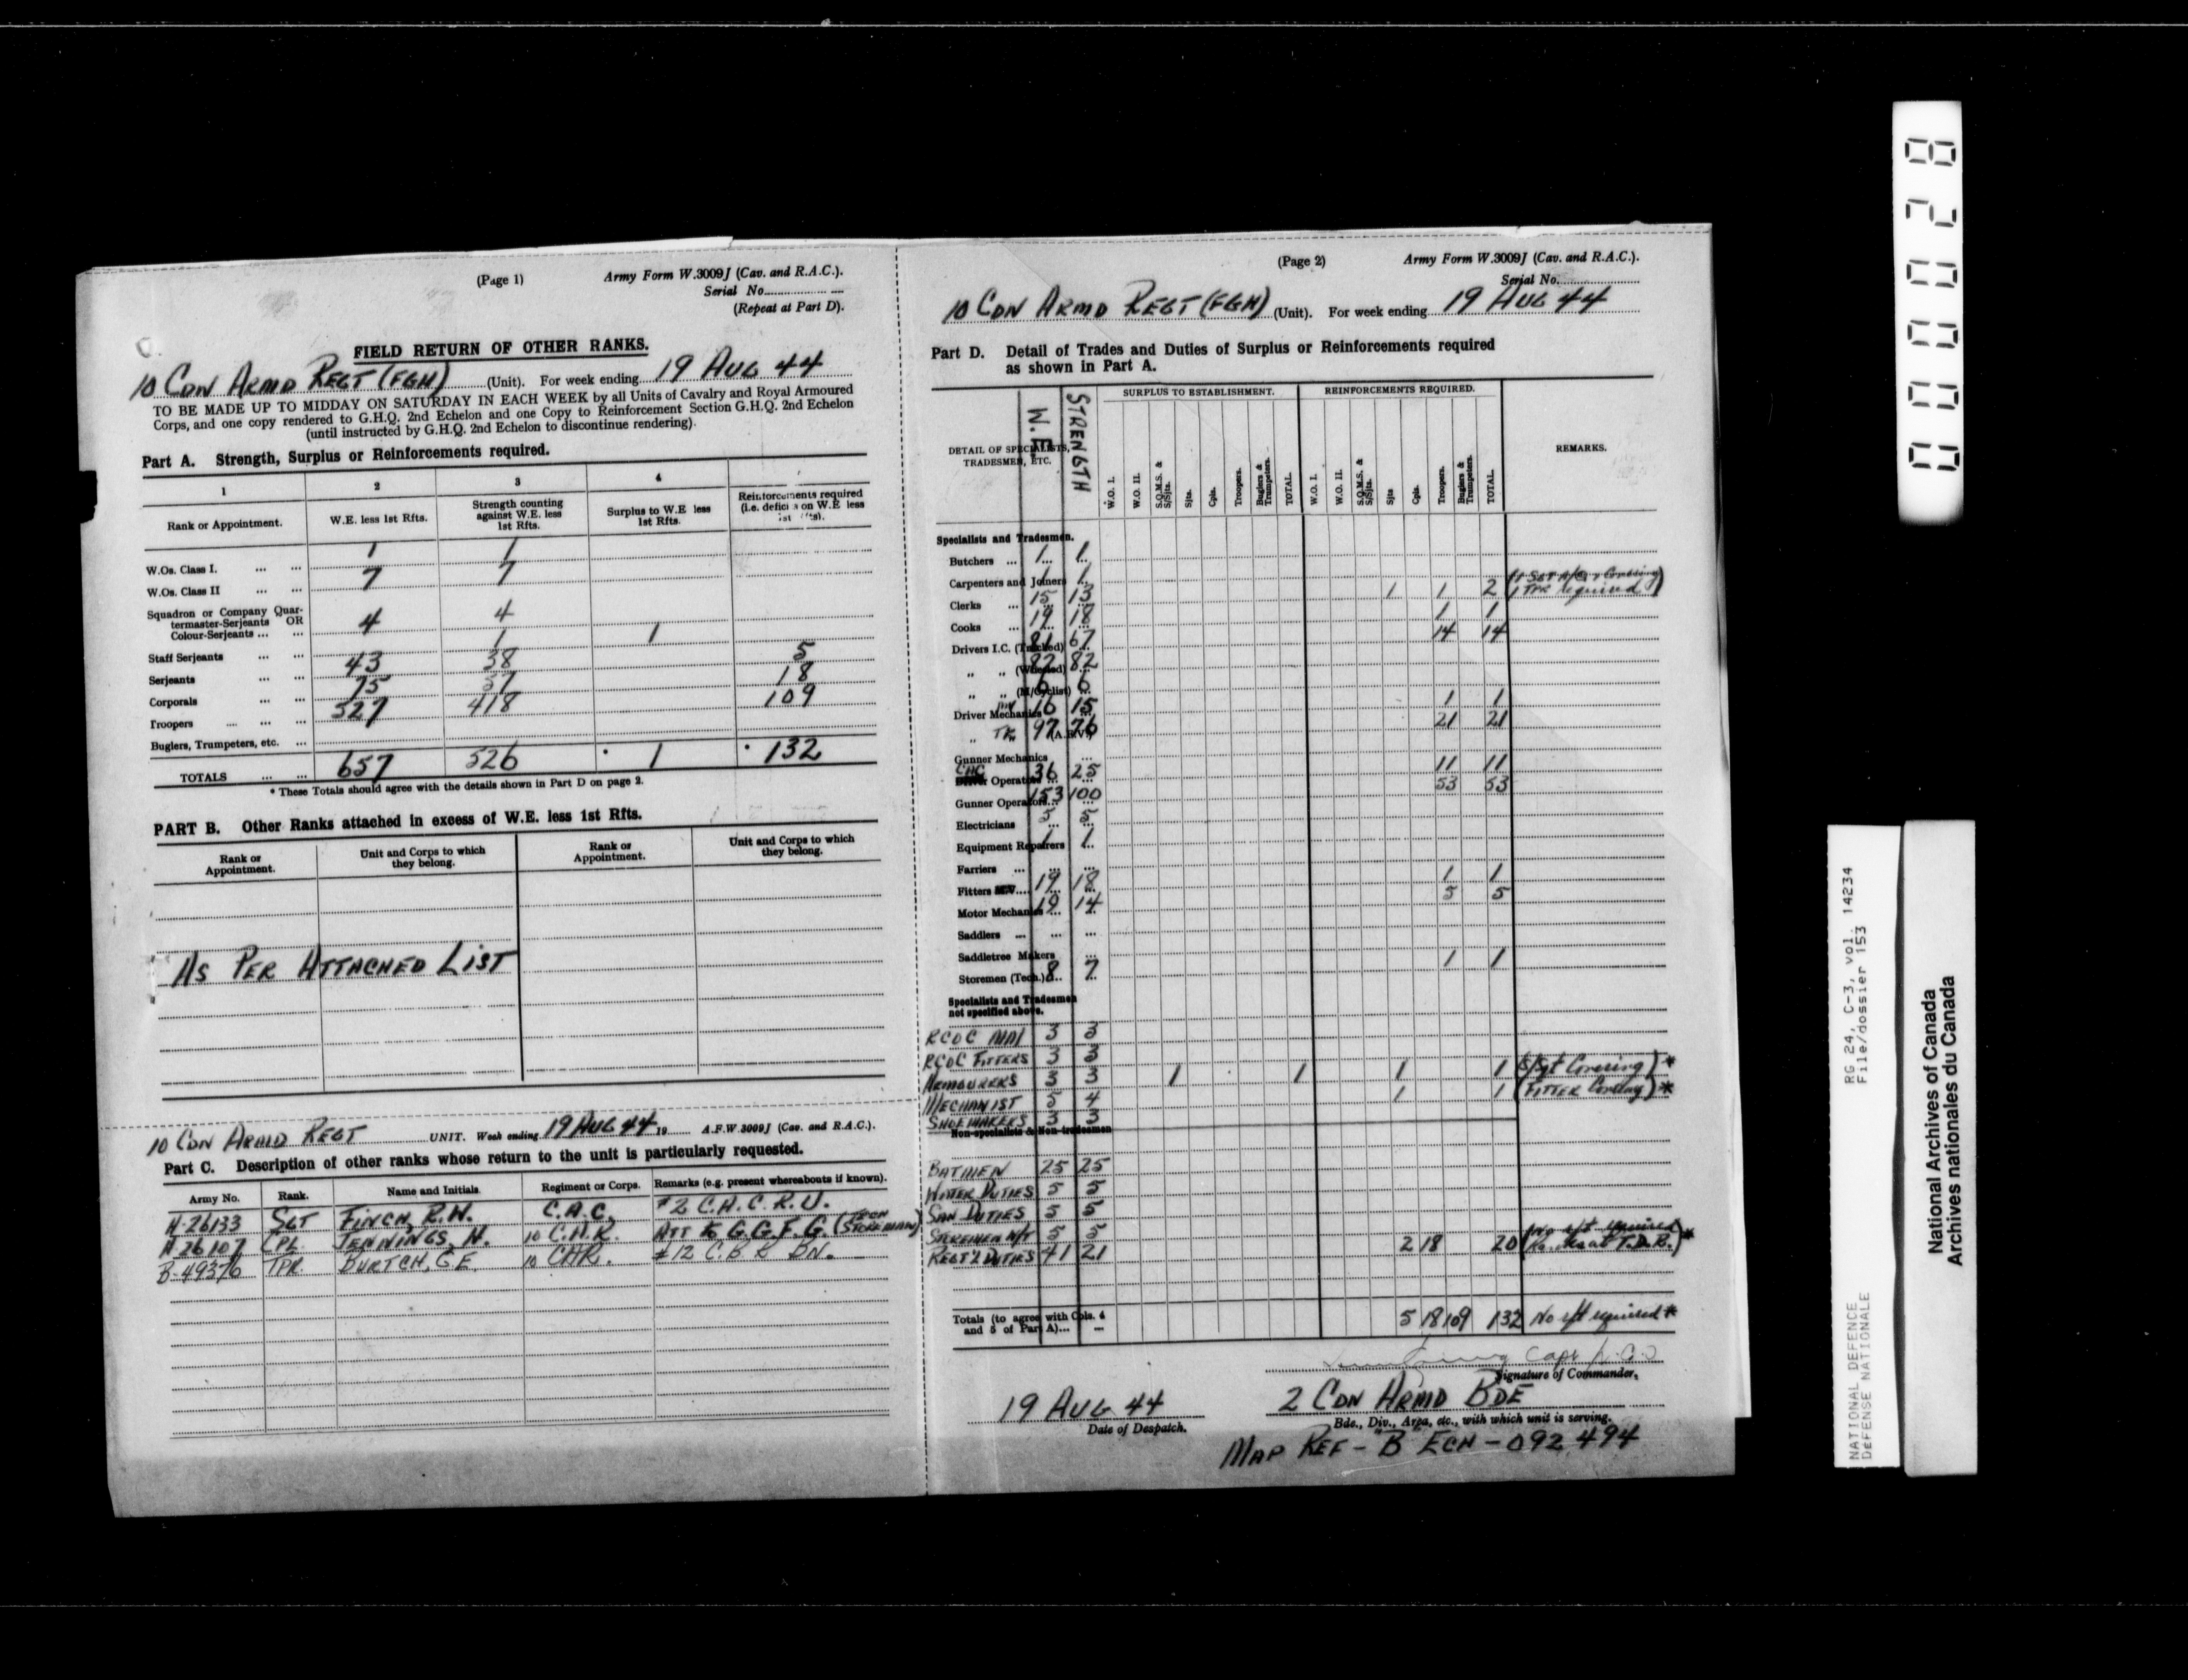 (Page 1)
Army Form W.3009J (Cav. and R.A.C.).
Serial No.
(Repeat at Part D).
FIELD RETURN OF OTHER RANKS.
10 CDN ARMD REGT (FGH) (Unit). For week ending 19 AUG 44
TO BE MADE UP TO MIDDAY ON SATURDAY IN EACH WEEK by all Units of Cavalry and Royal Armoured
Corps, and one copy rendered to G.H.Q. 2nd Echelon and one Copy to Reinforcement Section G.H.Q. 2nd Echelon
(until instructed by G.H.Q. 2nd Echelon to discontinue rendering).
Part A. Strength, Surplus or Reinforcements required.
1 2 3 4
Rank or Appointment. W.E. less 1st Rfts. Strength counting against W.E. less 1st Rfts. Surplus to W.E. less 1st Rfts. Reinforcements required (i.e. on W.E. less
W.Os. Class I. ... ... 1 1
W.Os. Class II ... ... 7 7
Squadron or Company Quar-
termaster-Serjeants OR
Colour-Serjeants ... ... 4 4
Staff Serjeants ... ... 1 1
Serjeants ... ... 43 38 5
Corporals ... ... 75 57 18
Troopers ... ... ... 527 418 109
Buglers, Trumpeters, etc. ...
TOTALS ... ... 657 526 * 1 * 132
* These Totals should agree with the details shown in Part D on page 2.
PART B. Other Ranks attached in excess of W.E. less 1st Rfts.
Rank or Appointment. Unit and Corps to which they belong. Rank or Appointment. Unit and Corps to which they belong.
AS PER ATTACHED LIST
10 CDN ARMD REGT UNIT. Week ending 19 AUG 44 19 A.F.W. 3009J (Cav. and R.A.C.).
Part C. Description of other ranks whose return to the unit is particularly requested.
Army No. Rank. Name and Initials Regiment or Corps. Remarks (e.g. present whereabouts if known).
H-26133 SGT FINCH, R.W. C.A.C. #2 C.A.C.R.U.
H-26107 CPL JENNINGS, H. 10 C.A.R. ATT G.G.F.G. (TECH STOREMAN)
B-49376 TPR BURTCH, G.E. 10 CAR. #12 C.B.R. BN.
(Page 2)
Army Form W.3009J (Cav. and R.A.C.).
Serial No.
10 CDN ARMD REGT (FGH) (Unit). For week ending 19 AUG 44
Part D. Detail of Trades and Duties of Surplus or Reinforcements required
as shown in Part A.
DETAIL OF SPECIALISTS, TRADESMEN, ETC. W.E. STRENGTH SURPLUS TO ESTABLISHMENT. REINFORCEMENTS REQUIRED. REMARKS.
W.O. I. W.O. II. S.Q.M.S. & S/Sjts. Sjts. Cpls. Troopers. Buglers & Trumpeters. TOTAL. W.O. I. W.O. II. S.Q.M.S. & S/Sjts. Sjts Cpls. Troopers. Buglers & Trumpeters. TOTAL.
Specialists and Tradesmen.
Butchers ... 1 1
Carpenters and Joiners 1 1
Clerks ... 15 13 1 1 2 1 Tpr required)
Cooks ... 19 18 1 1
Drivers I.C. (Tracked) 81 67 14 14
„ „ (Wheeled) 82 82
„ „ (M/Cyclist) 6 6
Driver Mechanics 16 15 1 1
„ TK (A.F.V.) 97 76 21 21
Gunner Mechanics ...
Operators ... 36 25 11 11
Gunner Operators ... 153 100 53 53
Electricians ... 5 5
Equipment Repairers 1 1
Farriers ... ...
Fitters ... 19 18 1 1
Motor Mechanics ... 19 14 5 5
Saddlers ... ... ...
Saddletree Makers ...
Storemen (Tech.) 8 7 1 1
Specialists and Tradesmen
not specified above.
RCOC 3 3
RCOC FITTERS 3 3
ARMOURERS 3 3 1 1 1 1 (S/Sgt Covering) *
MECHANIST 5 4 1 1 (FITTER Covering) *
SHOEMAKERS 3 3
Non-specialists & Non-tradesmen
BATMEN 25 25
WATER DUTIES 5 5
SAN DUTIES 5 5
STOREMEN N/T 5 5
REGT'L DUTIES 41 21 2 18 20 (No rft required T.D.R.) *
Totals (to agree with Cols. 4
and 5 of Part A)... 5 18 109 132 No rft required *
Capt
Signature of Commander.
19 AUG 44
Date of Despatch.
2 CDN ARMD BDE
Bde., Div., Area, etc., with which unit is serving.
MAP REF - "B" ECH - 092 494
000028
RG 24, C-3, vol. 14234
File/dossier 153
NATIONAL DEFENCE
DEFENSE NATIONALE
National Archives of Canada
Archives nationales du Canada